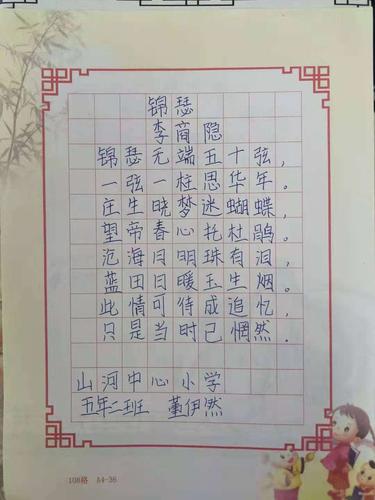 锦瑟
李商隐
锦瑟无端五十弦，
一弦一柱思华年。
庄生晓梦迷蝴蝶，
望帝春心托杜鹃。
沧海月明珠有泪，
蓝田日暖玉生烟。
此情可待成追忆，
只是当时已惘然。
山河中心小学
五年二班 董伊然
108格 A4-36